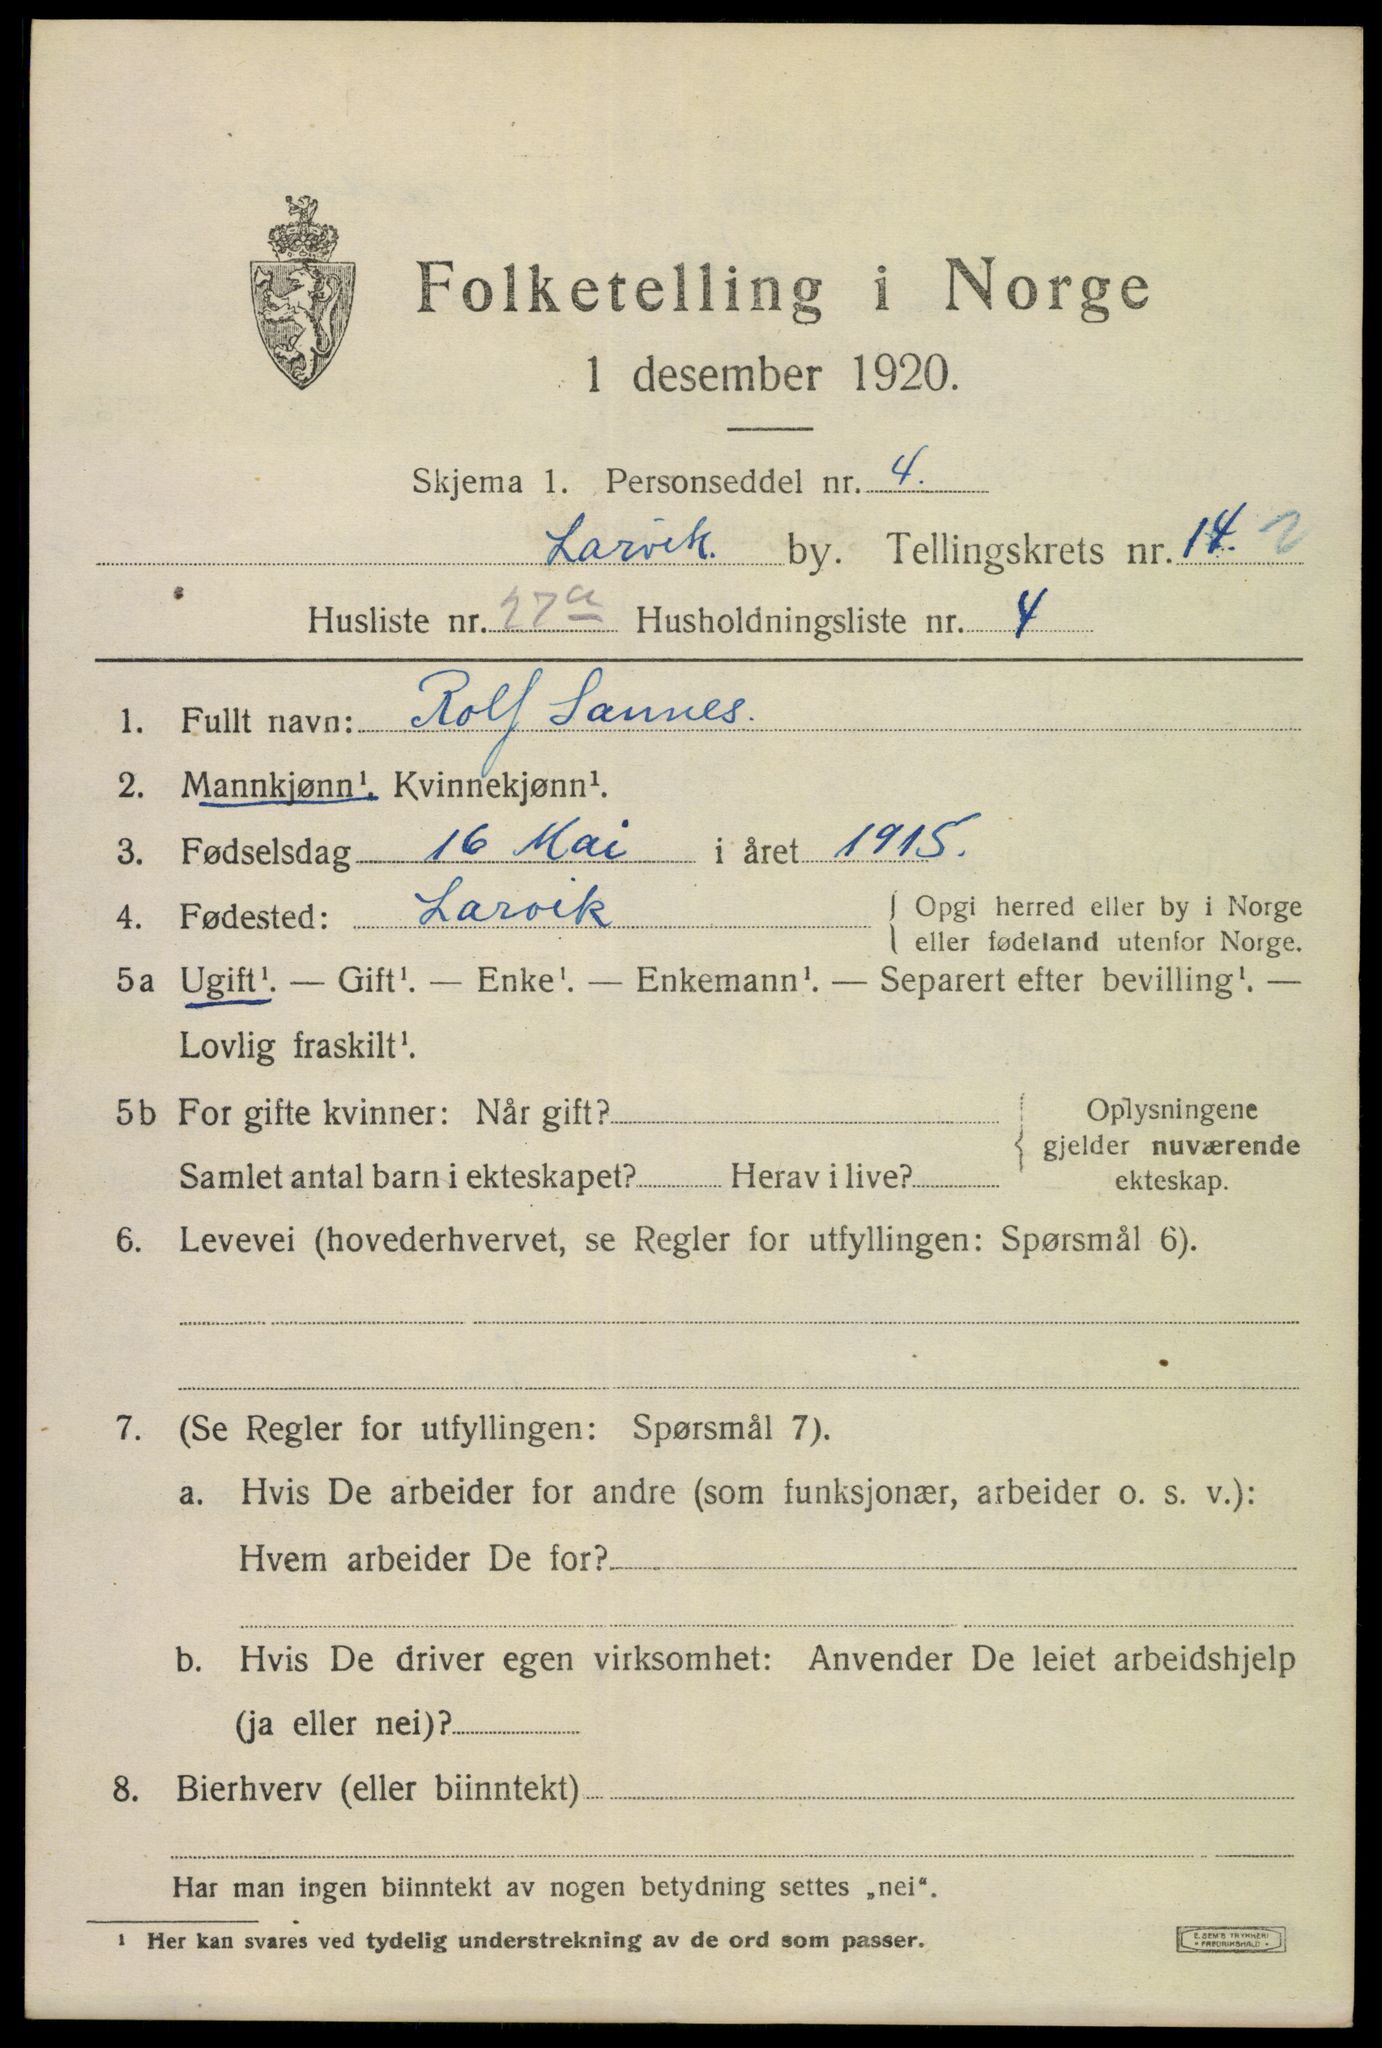 Folketelling i Norge
1 desember 1920.
Skjema 1. Personseddel nr. 4.
Larvik. by. Tellingskrets nr. 14. 2
Husliste nr. 27a Husholdningsliste nr. 4
1. Fullt navn: Rolf Sannes.
2. Mannkjønn¹. Kvinnekjønn¹.
3. Fødselsdag 16 Mai i året 1915.
4. Fødested: Larvik { Opgi herred eller by i Norge
eller fødeland utenfor Norge.
5a Ugift¹. — Gift¹. — Enke¹. — Enkemann¹. — Separert efter bevilling¹. —
Lovlig fraskilt¹.
5b For gifte kvinner: Når gift? { Oplysningene
gjelder nuværende
Samlet antal barn i ekteskapet? Herav i live? ekteskap.
6. Levevei (hovederhvervet, se Regler for utfyllingen: Spørsmål 6).
7. (Se Regler for utfyllingen: Spørsmål 7).
a. Hvis De arbeider for andre (som funksjonær, arbeider o. s. v.):
Hvem arbeider De for?
b. Hvis De driver egen virksomhet: Anvender De leiet arbeidshjelp
(ja eller nei)?
8. Bierhverv (eller biinntekt)
Har man ingen biinntekt av nogen betydning settes „nei“.
¹ Her kan svares ved tydelig understrekning av de ord som passer.
E. SEM'S TRYKKERI
• FREDRIKSHALD •